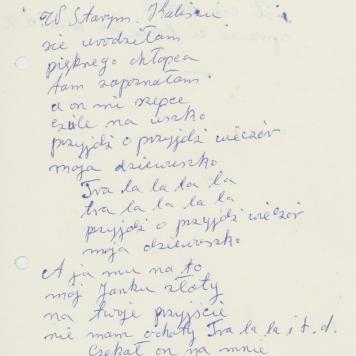 W Starym Kaliszu
sie urodziłam
pięknego chłopca
tam zapoznałam
a on mi szepce
czule na uszko
przyjdź o przyjdź wieczór
moja dziewuszko
Tra la la la la
tra la la la la
przyjdź o przyjdź wieczór
moja dziewuszko
A ja mu na to
mój Janku złoty
na twoje przyjście
nie mam ochoty Tra la la i t.d.
Czekał on na mnie